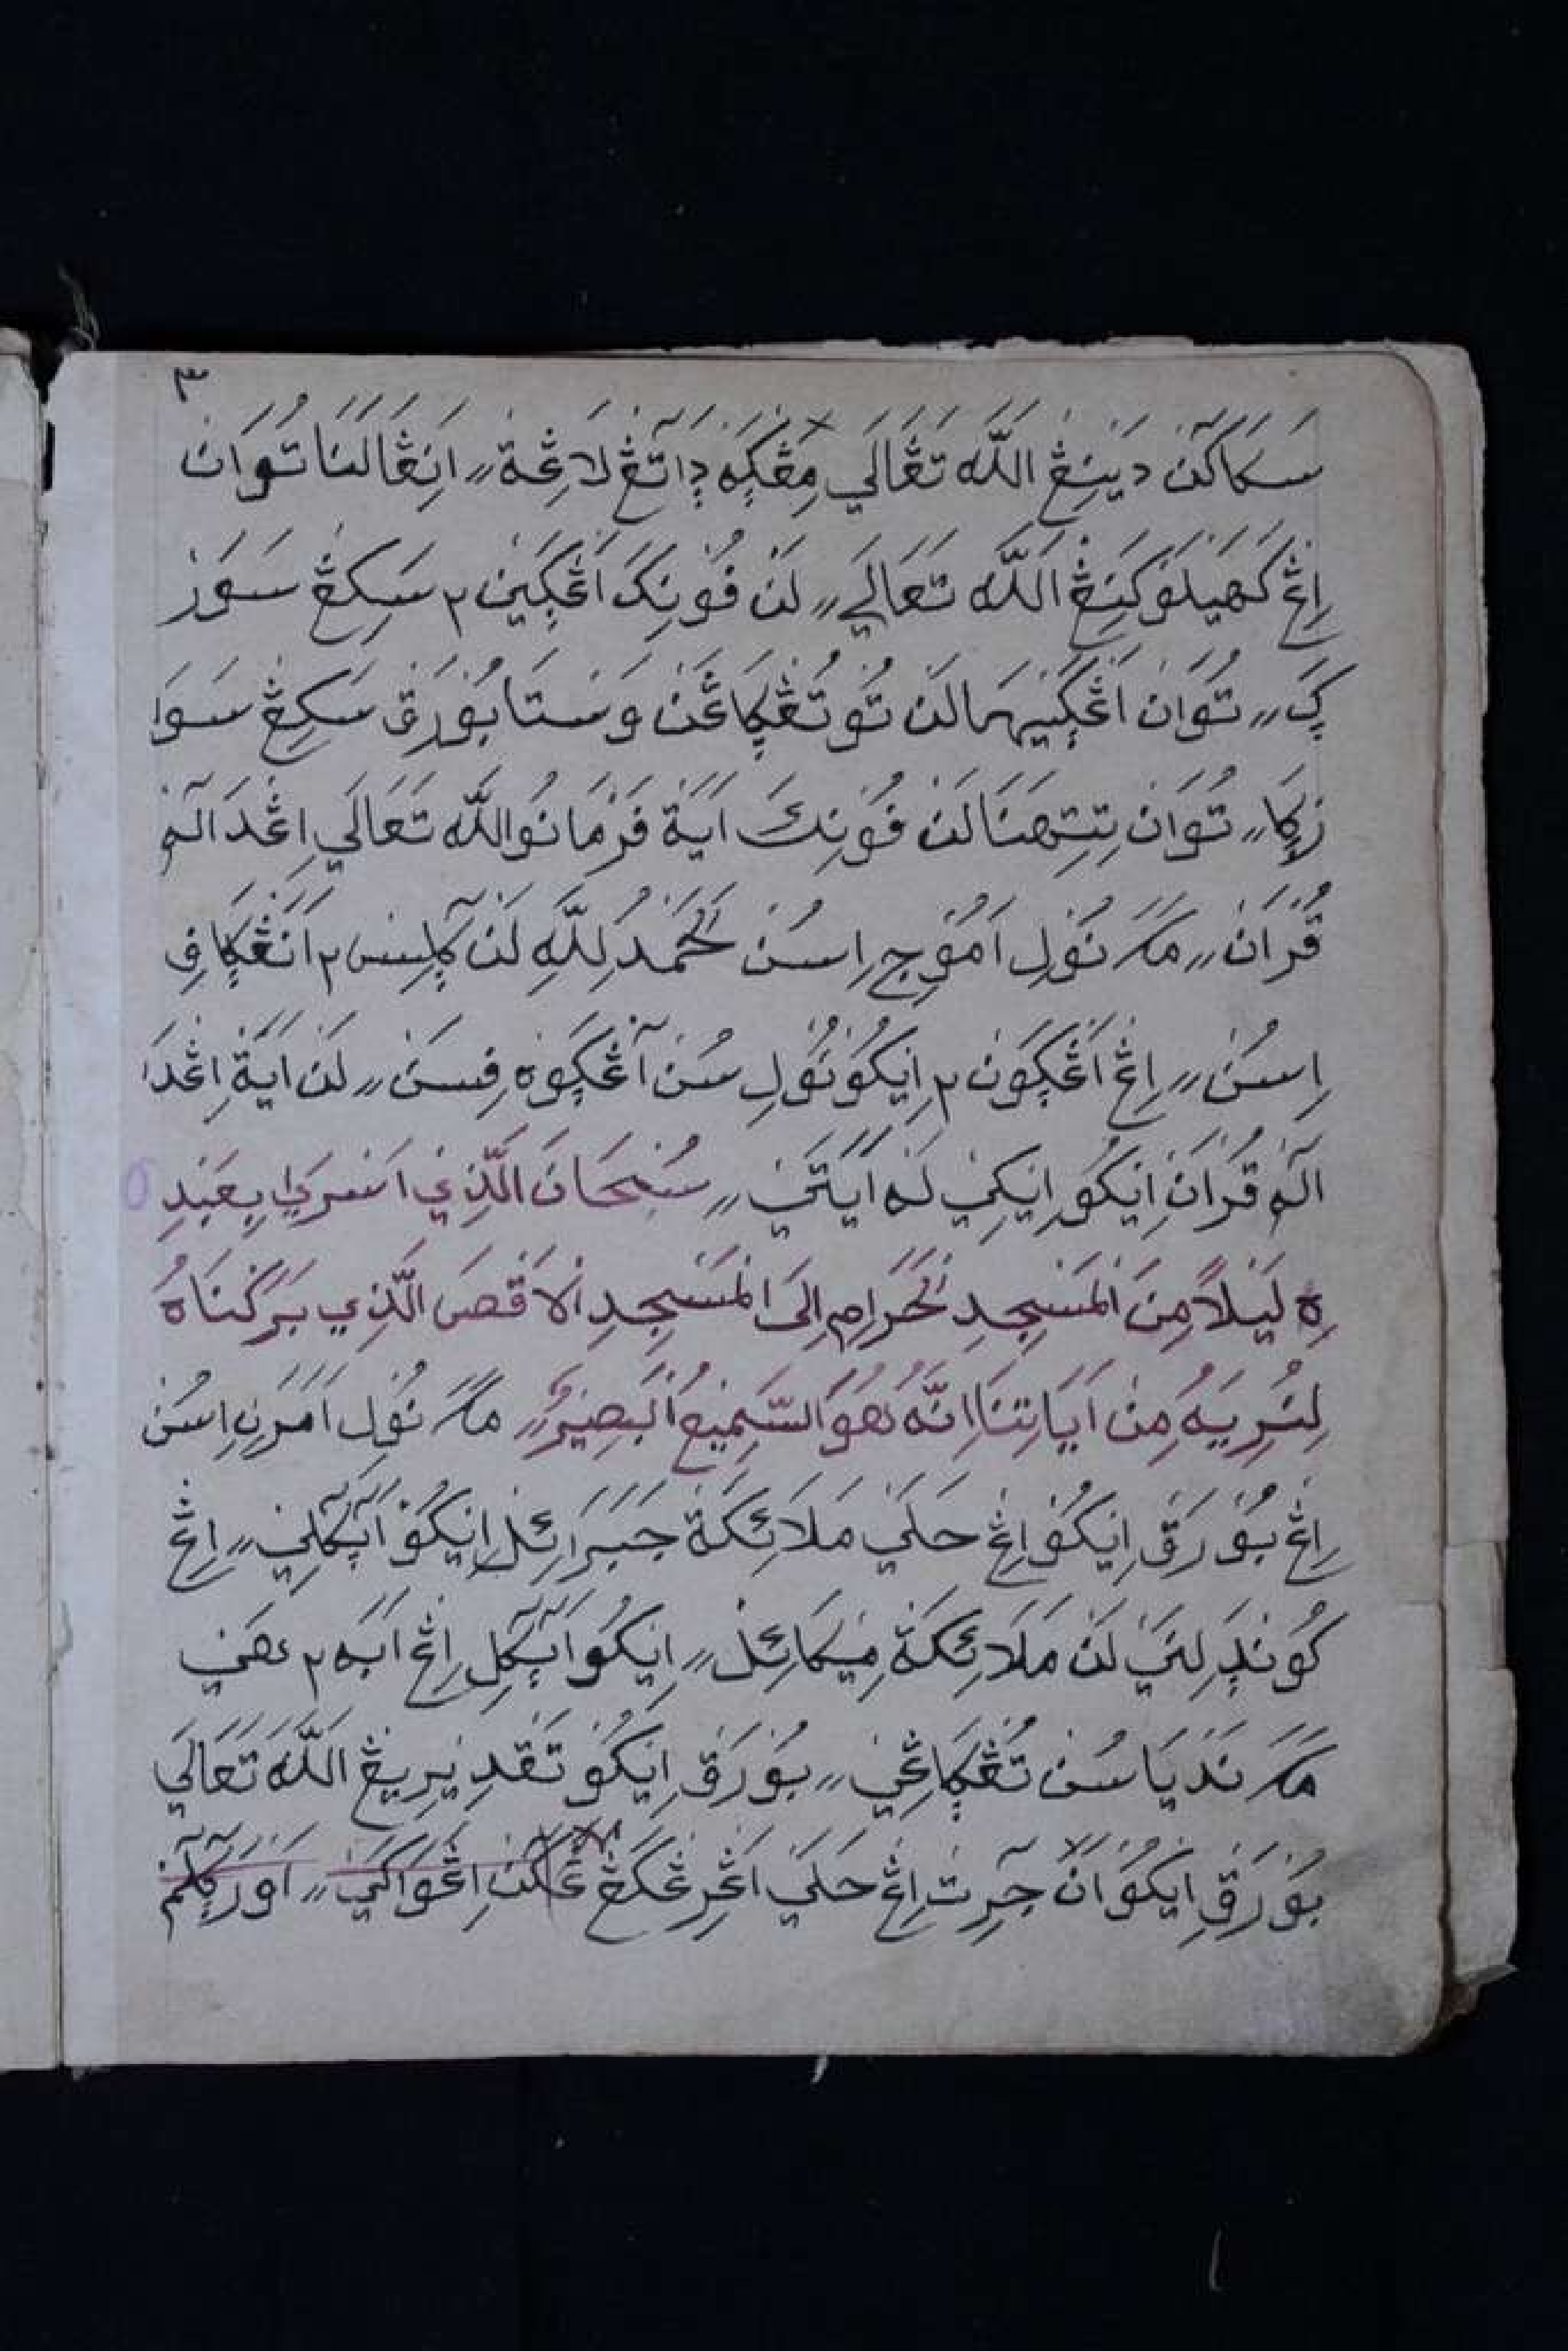 ٣
سَكَاكَن دَيْنِڠْ اللّٰه تَعَالَي مِڠْڮَه دِاَتَڠْ لَاڠِۃْ ؍؍ اَنِڠَالَنَا تُوَانْ
اِڠْ كَهِيْلَوْكَنِڠْ اللّٰه تَعَالَي ؍؍ لَنْ فُوْنِكَ اَڠْڮِيْنْ ٢ سَكِڠْ سَوَرْ
ڮَ ؍؍ تُوَانْ اَڠْڮَيْهَا لَنْ تُوْتُڠْڮَاڠَنْ وَسْتَا بُوْرَقْ سَكِڠْ سَوَا
رْڮَا ؍؍ تُوَانْ تِتِهَنَا لَنْ فُوْنِكَ اَيَةْ فَرْمَانُو اللّٰه تَعَالَي اِڠْدَالَمْ
قُرْاَنْ ؍؍ مَكَ نُوْلِ اَمُوْجِ اِسُنْ اَلْحَمْدُ لِلّٰهِ لَنْ ڮَلِسْ ٢ اَنْڠْڮَافِ
اِسُنْ ؍؍ اِڠْ اَڠْڮَوْنْ ٢ اِيْكُوْ نُوْلِ سُنْ اَڠْڮَوْه فِسَنْ ؍؍ لَنْ اَيَةْ اِڠْدَا
لَمْ قُرْاَنْ اِيْكُوْ اِيْكِيْ لَه اَيَتَيْ ؍؍ سُبْحَانَ الَّذِيْ اَسْرَي بِعَبْدِ
هِ لَيْلًا مِنَ الْمَسْجِدِ الْحَرَامِ اِلَى الْمَسْجِدِ الْاَقْصَ الَّذِي بَرَكْنَاهُ
لِنُرِيَهُ مِنْ اَيَاتِنَا اِنَّهُ هُوَ السَّمِيْعُ الْبَصِيْرُ ؍؍ مَكَ نُوْلِ اَمَرَنِ اِسُنْ
اِڠْ بُوْرَقْ اِيْكُوْ اِڠْ حَلَيْ مَلَائِكَةْ جَبَرَائِلْ اِيْكُوْ اَڮَمَلِيْ ؍؍ اِڠْ
كُوْنْدَلِنَيْ لَنْ مَلَائِكَةْ مِيْكَائِلْ ؍؍ اِيْكُوْ اَڮَمَلِ اِڠْ اَبَه ٢ هَيْ
مَكَ نَدْيَا سُنْ تُڠْڮَاڠِيْ ؍؍ بُوْرَقْ اِيْكُوْ تَقْدِيْرِيْڠْ اللّٰه تَعَالَي
بُوْرَقْ اِيْكُوْ اَنْ جِرِتْ اِڠْ حَلَيْ اَڠْرِڠْكَڠْ ڠَكَنْ اِڠْوَاكَيْ ؍؍ اَوْرَ ڮَلَمْ